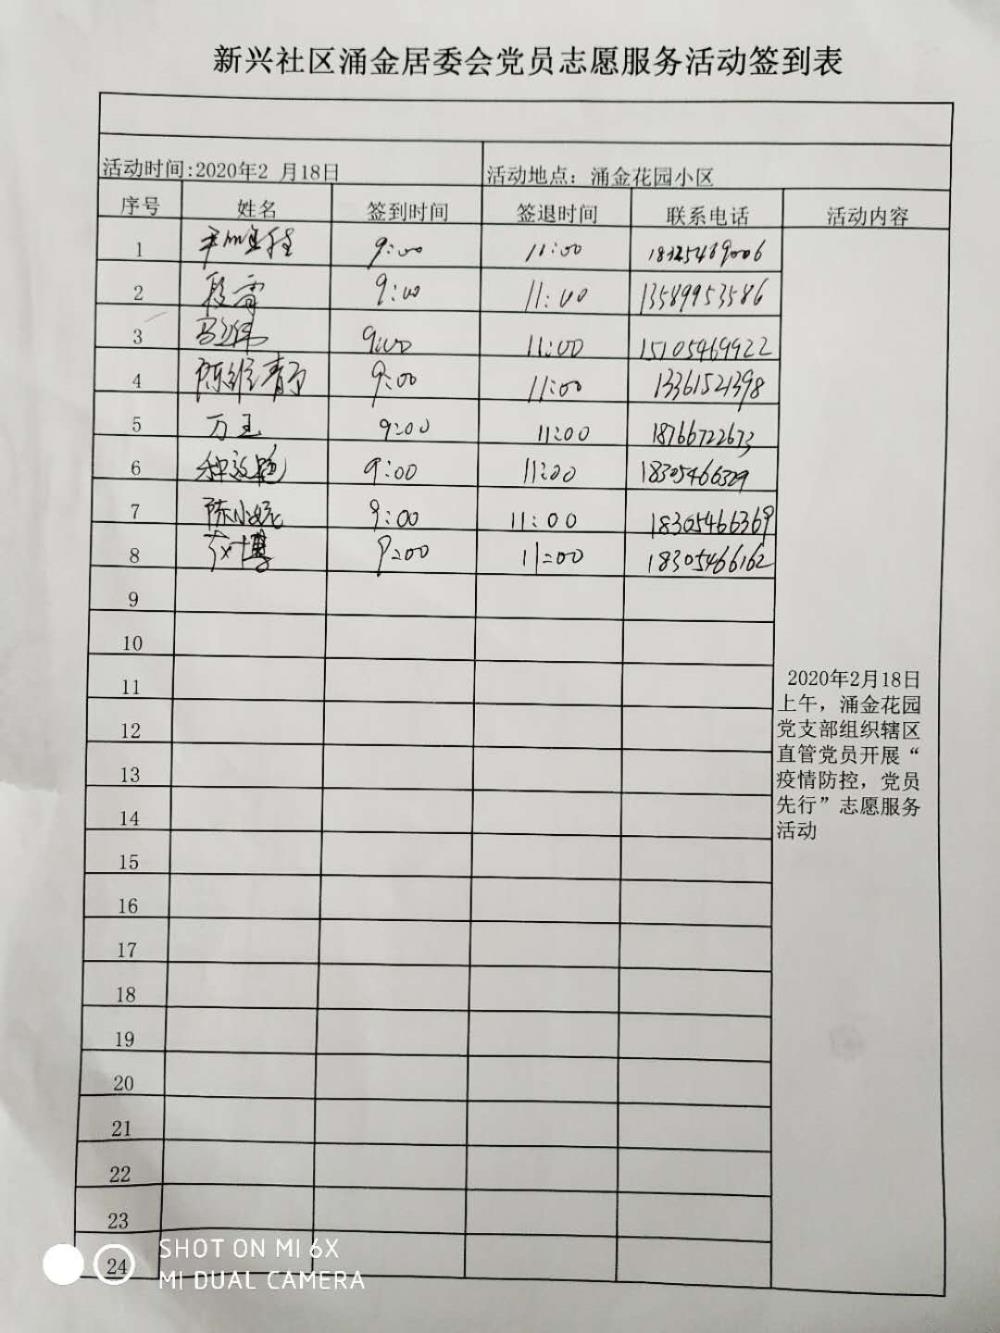 新兴社区涌金居委会党员志愿服务活动签到表
活动时间:2020年2 月18日 活动地点：涌金花园小区
序号 姓名 签到时间 签退时间 联系电话 活动内容
1 9:00 11:00
2 段雷 9:00 11:00 13589953586
3 9:00 11:00 15105469922
4 9:00 11:00 13361521398
5 万玉 9:00 11:00 18766722673
6 9:00 11:00
7 陈小妮 9:00 11:00 18305466369
8 9:00 11:00 18305466162
9
10
11
12
13
14
15
16
17
18
19
20
21
22
23
24
2020年2月18日
上午，涌金花园
党支部组织辖区
直管党员开展“
疫情防控，党员
先行”志愿服务
活动
SHOT ON MI 6X
MI DUAL CAMERA